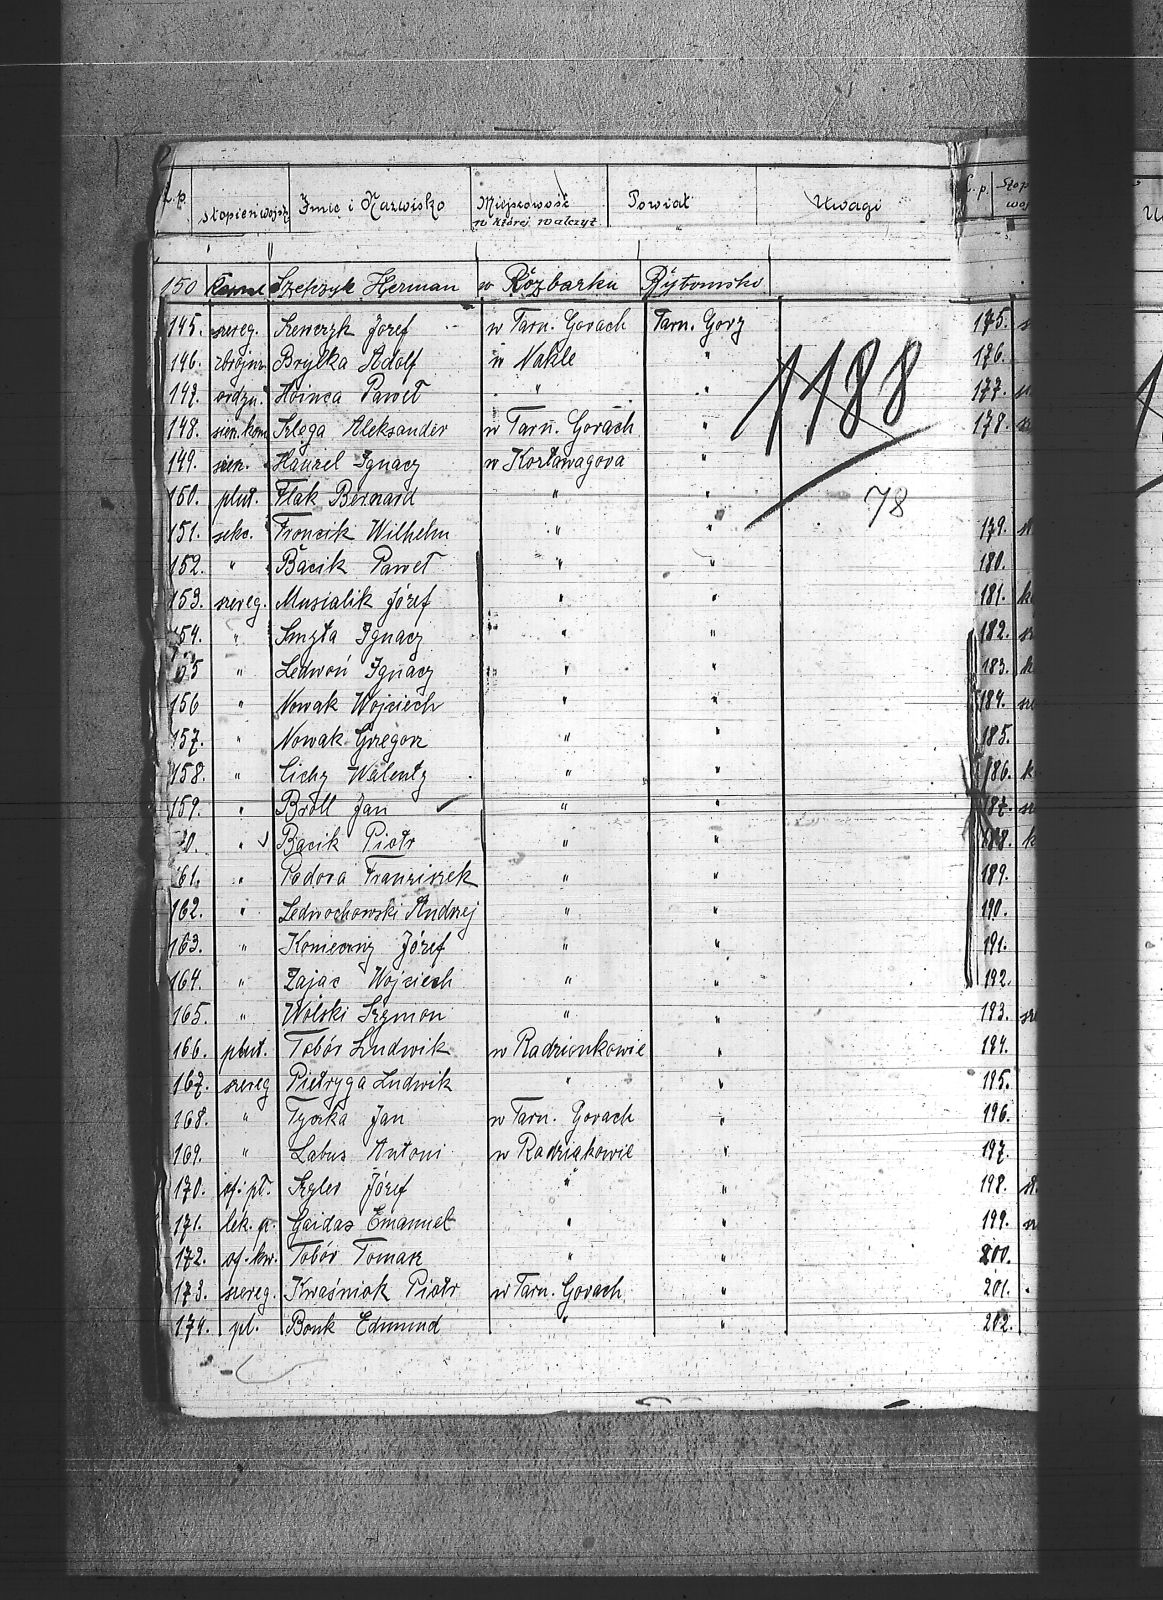 L.p. stopień wojsk Imię i Nazwisko Miejscowość w której walczył Powiat Uwagi
150 Szefczyk Herman w Rozbarku Bytomsko
145. szereg. Szewczyk Józef w Tarn. Gorach Tarn. Gory
146. zbrojm. Bryłka Adolf w Nakle "
147. ordzn. Hoinca Paweł " "
148. sierż.kom Szloga Aleksander w Tarn. Gorach "
149. sierż. Hauzel Ignacy w Korławagora "
150. plut. Flak Bernard " "
151. sekc. Froncik Wilhelm " "
152. " Bacik Paweł " "
153. szereg. Musialik Józef " "
154. " Smyła Ignacy " "
155 " Ledwoń Ignacy " "
156 " Nowak Wojciech " "
157. " Nowak Gregorz " "
158. " Cichy Walenty " "
159. " Broll Jan " "
0. " Bacik Piotr " "
161. " Padora Franciszek " "
162. " Ledwochowski Andrzej " "
163. " Józef " "
164. " Zajac Wojciech " "
165. " Wolski Szymon " "
166. plut. Tobór Ludwik w Radzionkowie "
167. szereg Pietryga Ludwik " "
168. " Jan w Tarn. Gorach "
169. " Labus Antoni w Radziakowie "
170. of. pł. Szyler Józef " "
171. lek. p. Gaidas Emanuel " "
172. of. kw. Tobór Tomasz " "
173. szereg. Kwaśniok Piotr w Tarn. Gorach "
174. pl. Bonk Edmund " "
1188
78
L.p. Stop
175.
176.
177.
178.
179.
180.
181.
182.
183.
184.
185.
186.
187.
188.
189.
190.
191.
192.
193.
194.
195.
196.
197.
198.
199.
200.
201.
202.